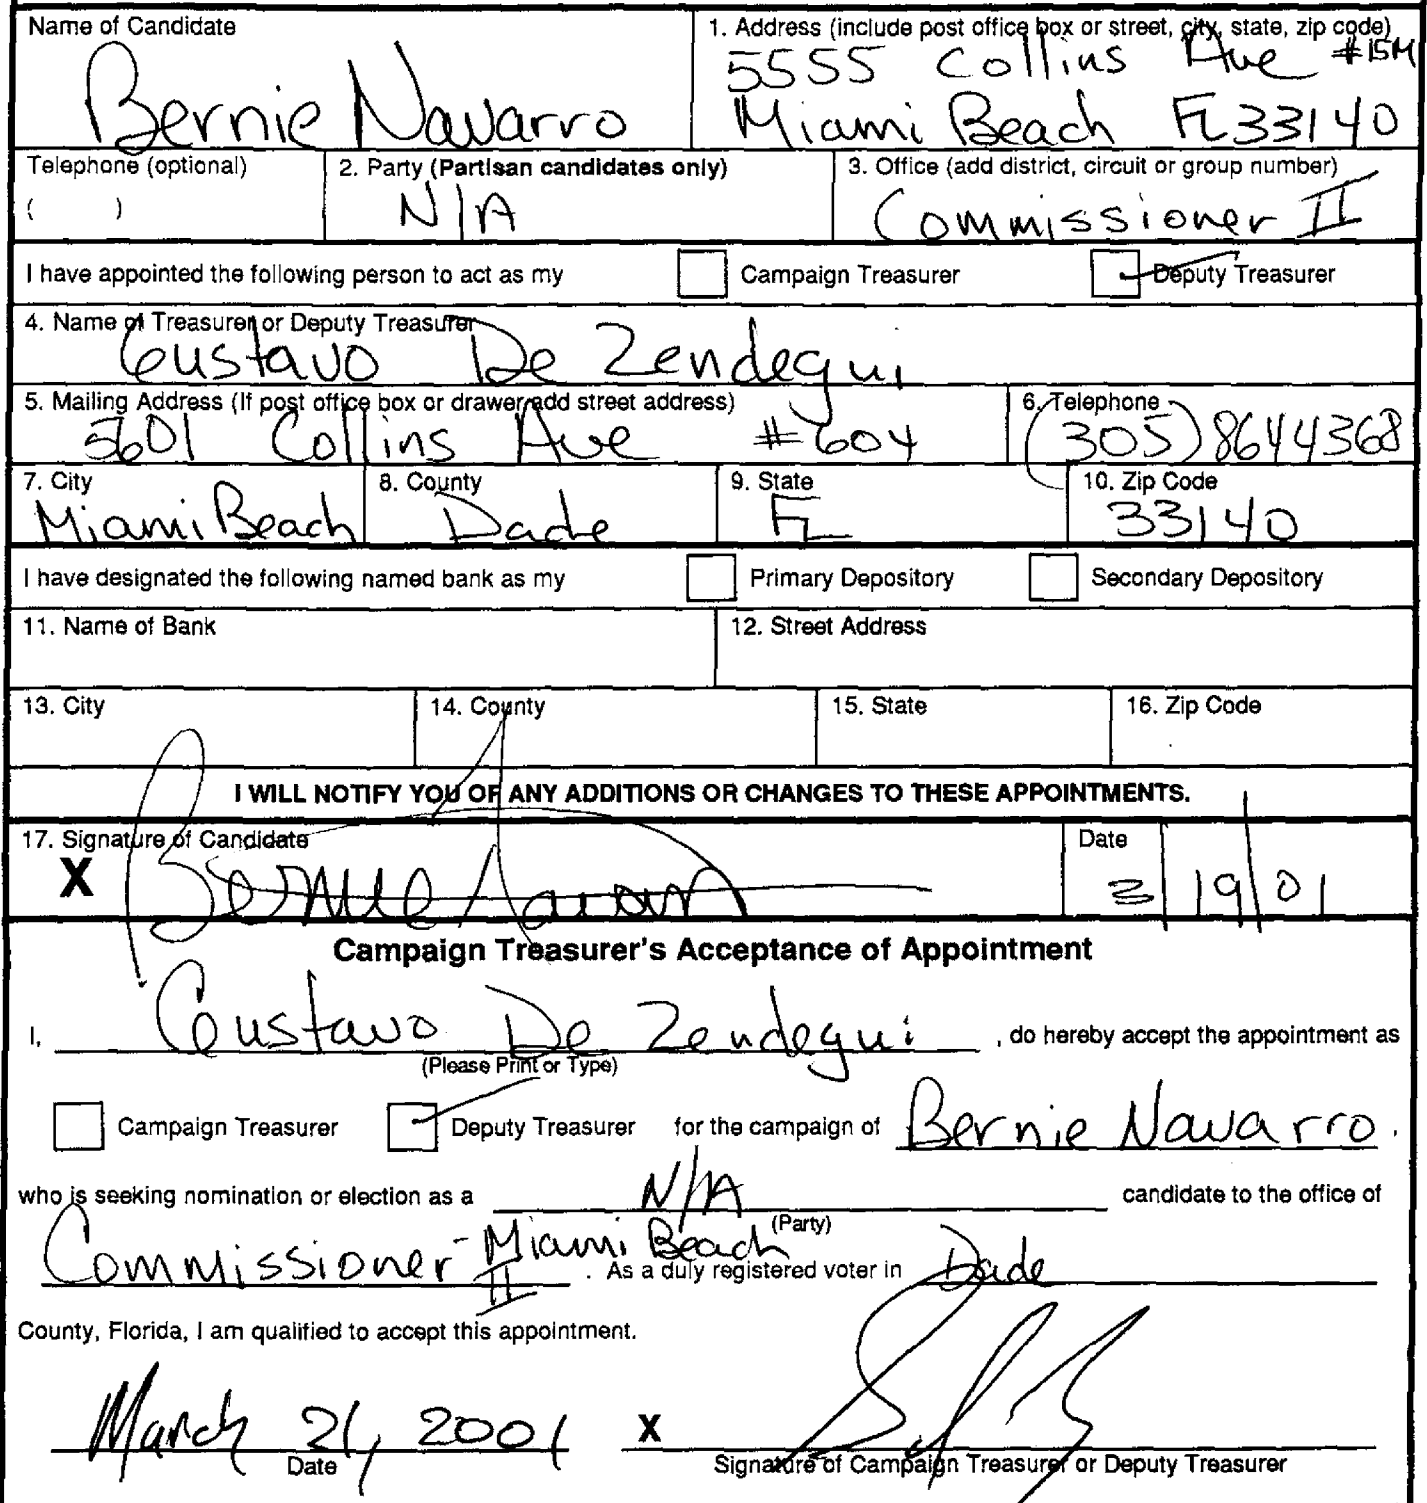 Name of Candidate
Bernie Navarro
1. Address (include post office box or street, city, state, zip code)
5555 Collins Ave #15M
Miami Beach FL 33140
Telephone (optional)
( )
2. Party (Partisan candidates only)
N/A
3. Office (add district, circuit or group number)
Commissioner II
I have appointed the following person to act as my Campaign Treasurer Deputy Treasurer
4. Name of Treasurer or Deputy Treasurer
Gustavo De Zendegui
5. Mailing Address (If post office box or drawer add street address)
5601 Collins Ave #604
6. Telephone
(305) 8644368
7. City
Miami Beach
8. County
Dade
9. State
FL
10. Zip Code
33140
I have designated the following named bank as my Primary Depository Secondary Depository
11. Name of Bank
12. Street Address
13. City
14. County
15. State
16. Zip Code
I WILL NOTIFY YOU OF ANY ADDITIONS OR CHANGES TO THESE APPOINTMENTS.
17. Signature of Candidate
X Bernie Navarro
Date
3/19/01
Campaign Treasurer's Acceptance of Appointment
I, Gustavo De Zendegui , do hereby accept the appointment as
(Please Print or Type)
Campaign Treasurer Deputy Treasurer for the campaign of Bernie Navarro.
who is seeking nomination or election as a N/A candidate to the office of
(Party)
Commissioner - Miami Beach II . As a duly registered voter in Dade
County, Florida, I am qualified to accept this appointment.
March 21, 2001 X
Date Signature of Campaign Treasurer or Deputy Treasurer